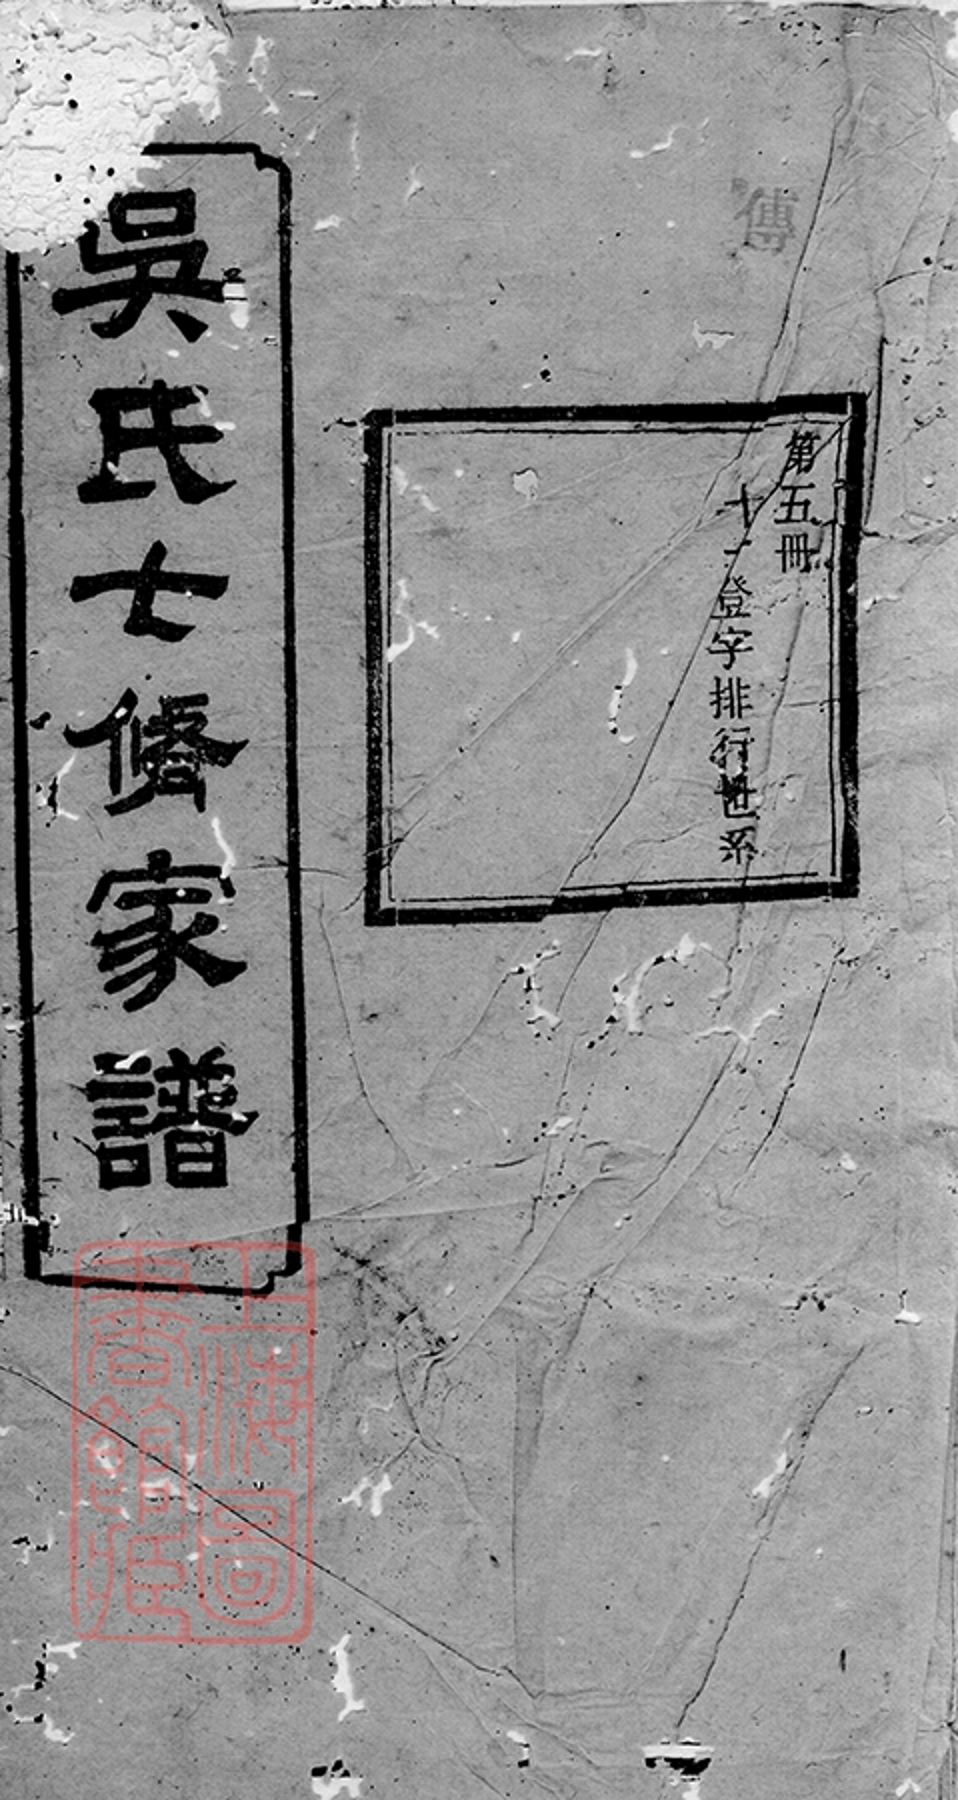 第五冊
十一登字排行世系
吳氏七脩家譜
上海圖
書館藏